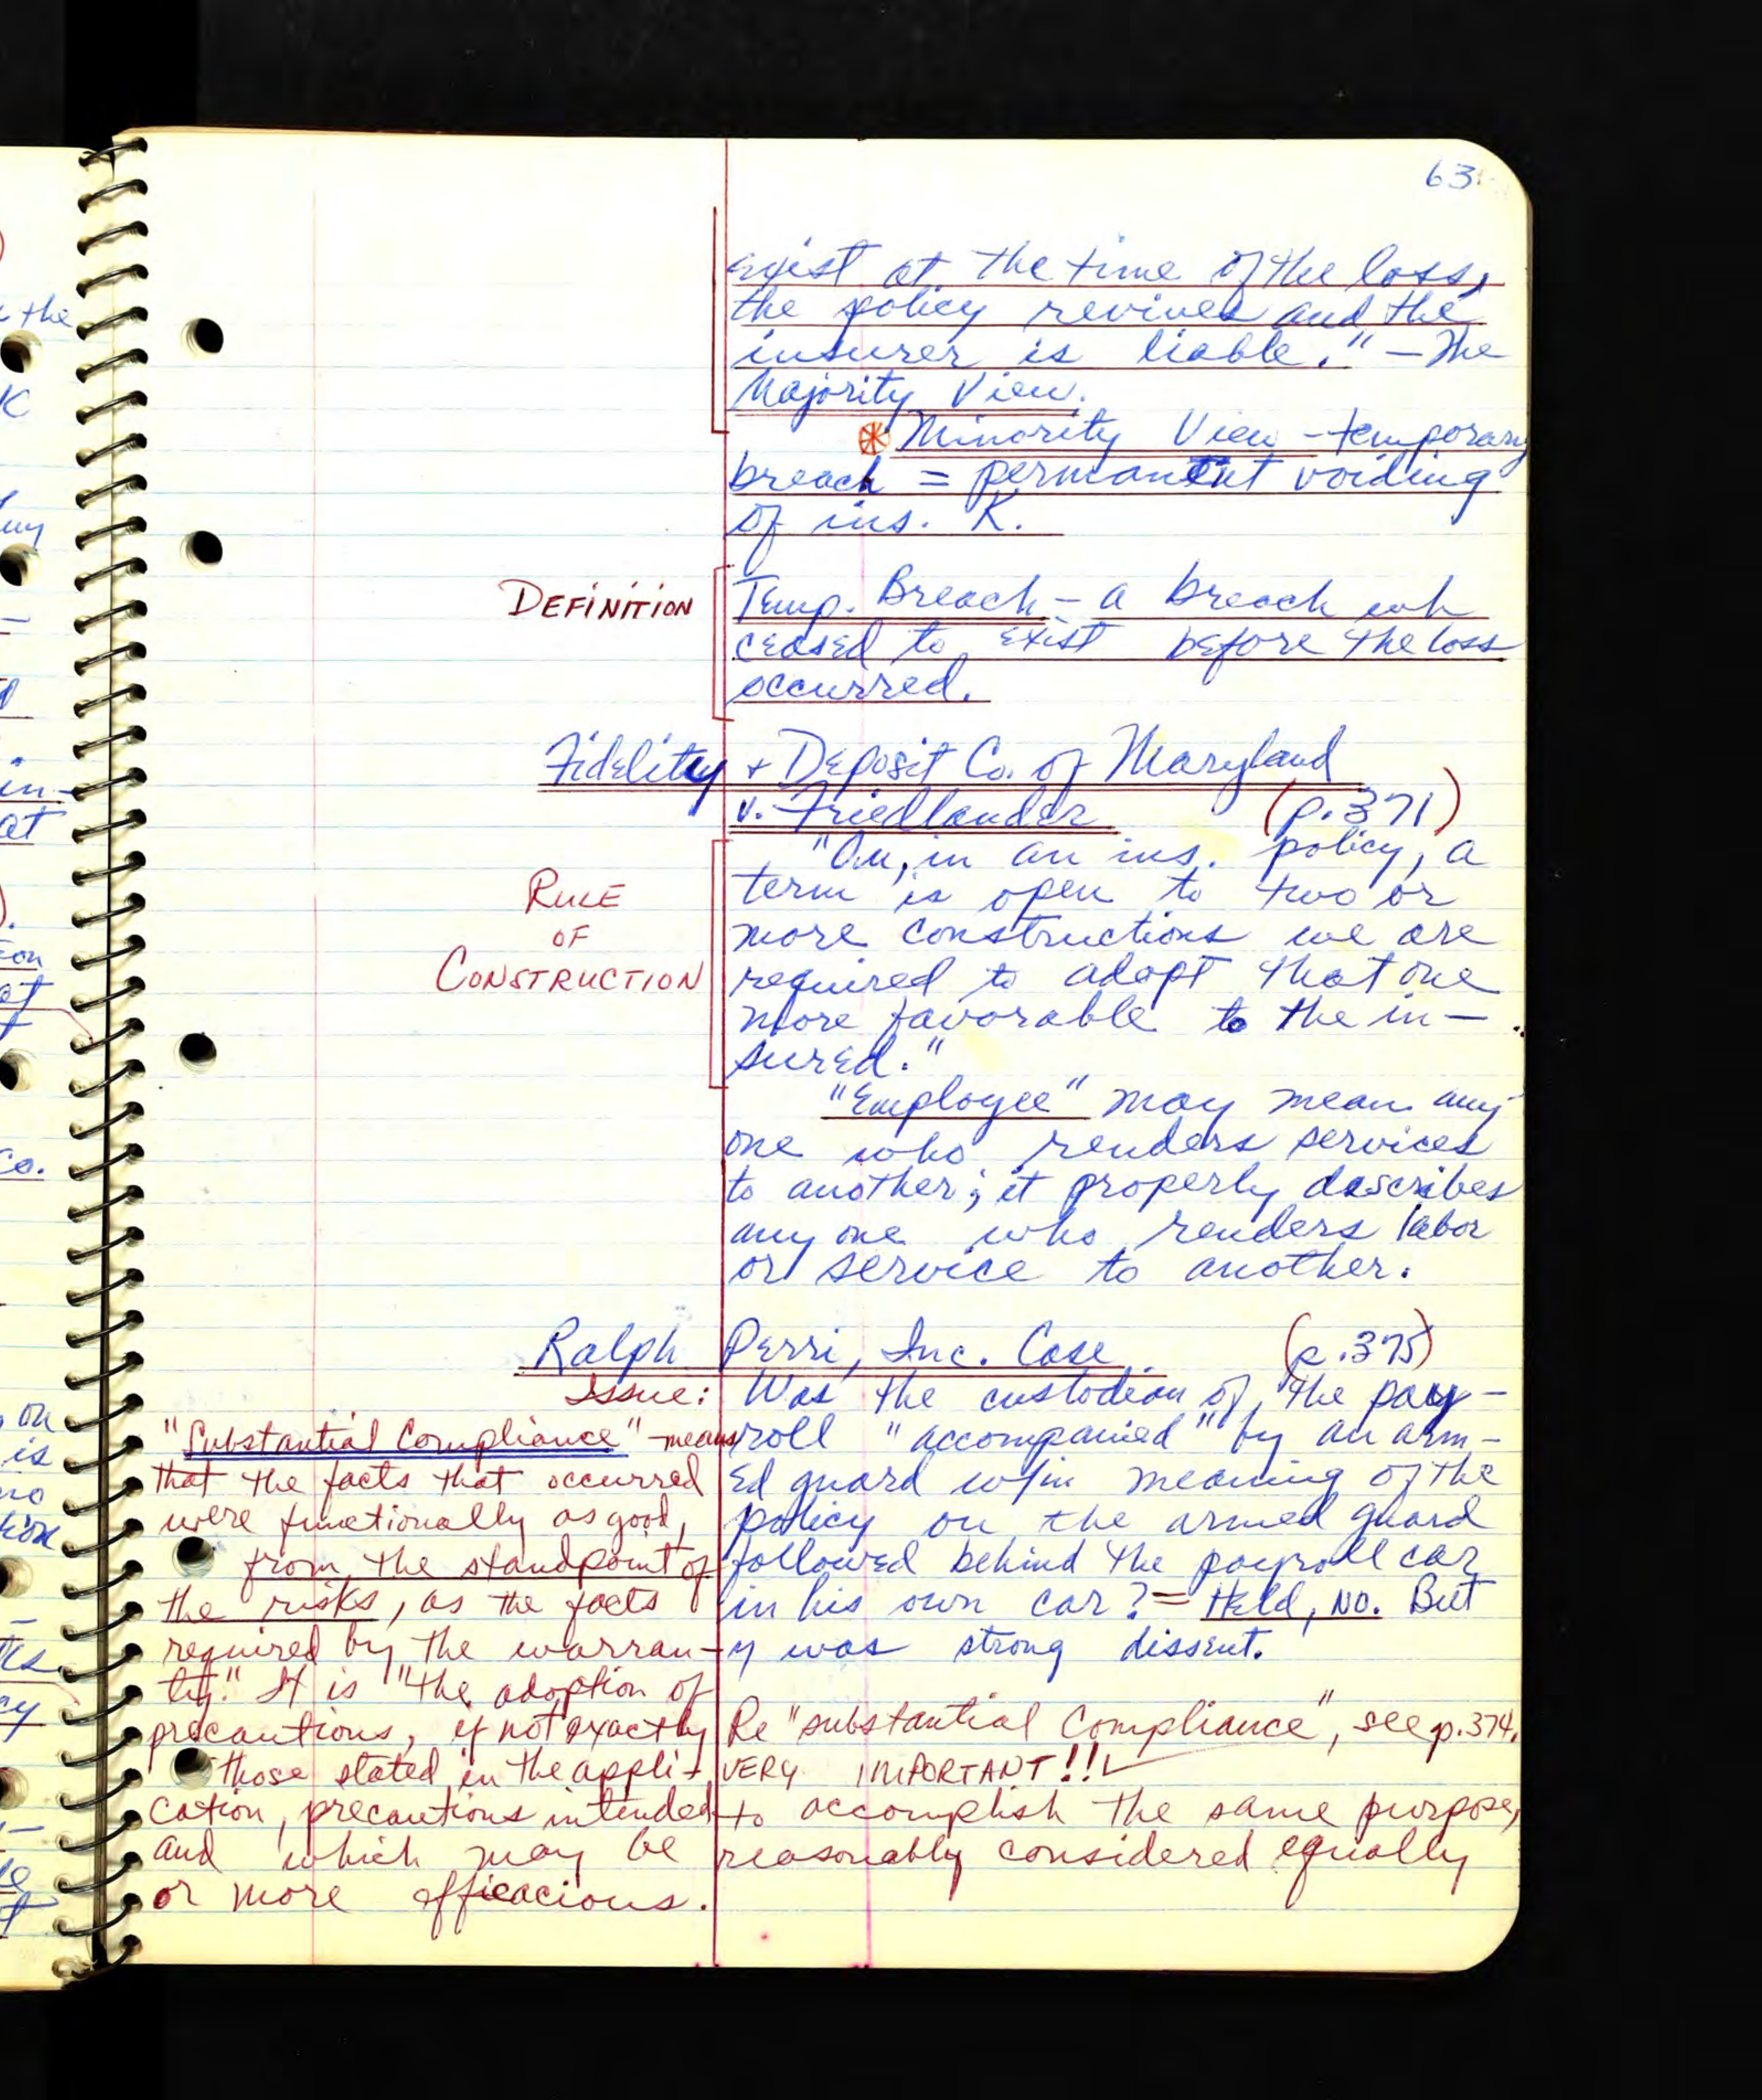 63
exist at the time of the loss,
the policy revives and the
insurer is liable." — The
Majority View.
Minority View - temporary
breach = permanent voiding
of ins. K.
DEFINITION
Temp. Breach - a breach wh
ceased to exist before the loss
occurred.
Fidelity + Deposit Co. of Maryland
v. Friedlander (p. 371)
RULE
OF
CONSTRUCTION
in an ins. policy, a
term is open to two or
more constructions we are
required to adopt that one
more favorable to the in-
sured."
"Employee" may mean any
one who renders services
to another; it properly describes
any one who renders labor
or service to another.
Ralph Perri, Inc. Case (p. 375)
Issue: Was the custodian of the pay-
roll "accompanied" by an arm-
ed guard w/in meaning of the
policy on the armed guard
followed behind the payroll car
in his own car? = Held, NO. But
y was strong dissent.
Re "substantial Compliance", see p. 374.
VERY IMPORTANT!!
"Substantial Compliance" - means
that the facts that occurred
were functionally as good,
from the standpoint of
the risks, as the facts
required by the warran-
ty." It is "the adoption of
precautions, if not exactly
those stated in the appli-
cation, precautions intended to accomplish the same purpose,
and which may be reasonably considered equally
or more efficacious.